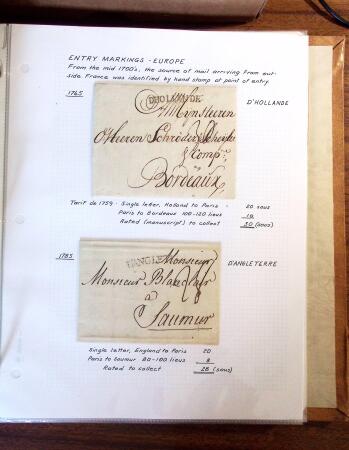 ENTRY MARKINGS - EUROPE
From the mid 1700's, the source of mail arriving from out-
side France was identified by hand stamp at point of entry.
1765
D'HOLLANDE
D'HOLLANDE
Mynheeren
Heeren Schröder
& Comp
Bordeaux
Tarif de 1759 - Single letter, Holland to Paris - 20 sous
Paris to Bordeaux 100-120 lieus 10
Rated (manuscript) to collect 30 (sous)
1785
D'ANGLETERRE
Monsieur
Monsieur
a
Saumur
Single letter, England to Paris 20
Paris to Saumur 80-100 lieus 8
Rated to collect 28 (sous)